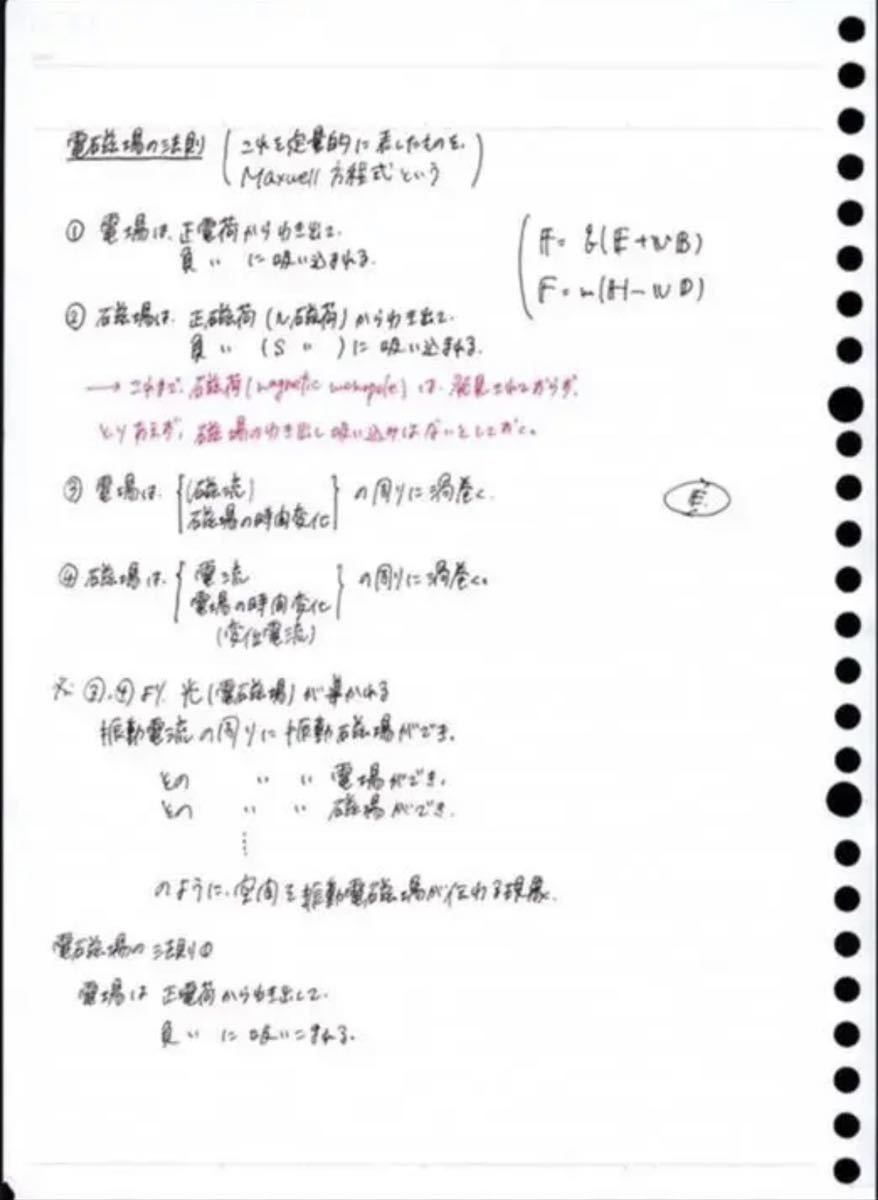 電磁場の法則 (これを定量的に表したものを、
Maxwell 方程式という)
① 電場は、正電荷からわき出て、
負 〃 に吸い込まれる。
F = q(E + v B)
F = m(H − v D)
② 磁場は、正磁荷 (N磁荷) からわき出て、
負 〃 (S 〃 ) に吸い込まれる。
→ これまで、磁荷(magnetic monopole) は、発見されておらず、
とりあえず、磁場のわき出し吸い込みはないとしておく。
③ 電場は、{(磁流)
磁場の時間変化} の周りに渦巻く。
E
④ 磁場は、{電流
電場の時間変化} の周りに渦巻く。
(変位電流)
※ ③、④より、光(電磁場)が導かれる
振動電流の周りに振動磁場ができ、
その 〃 〃 電場ができ、
その 〃 〃 磁場ができ、
⋮
のように、空間を振動電磁場が伝わる現象。
電磁場の法則①
電場は 正電荷からわき出して、
負 〃 に吸いこまれる。